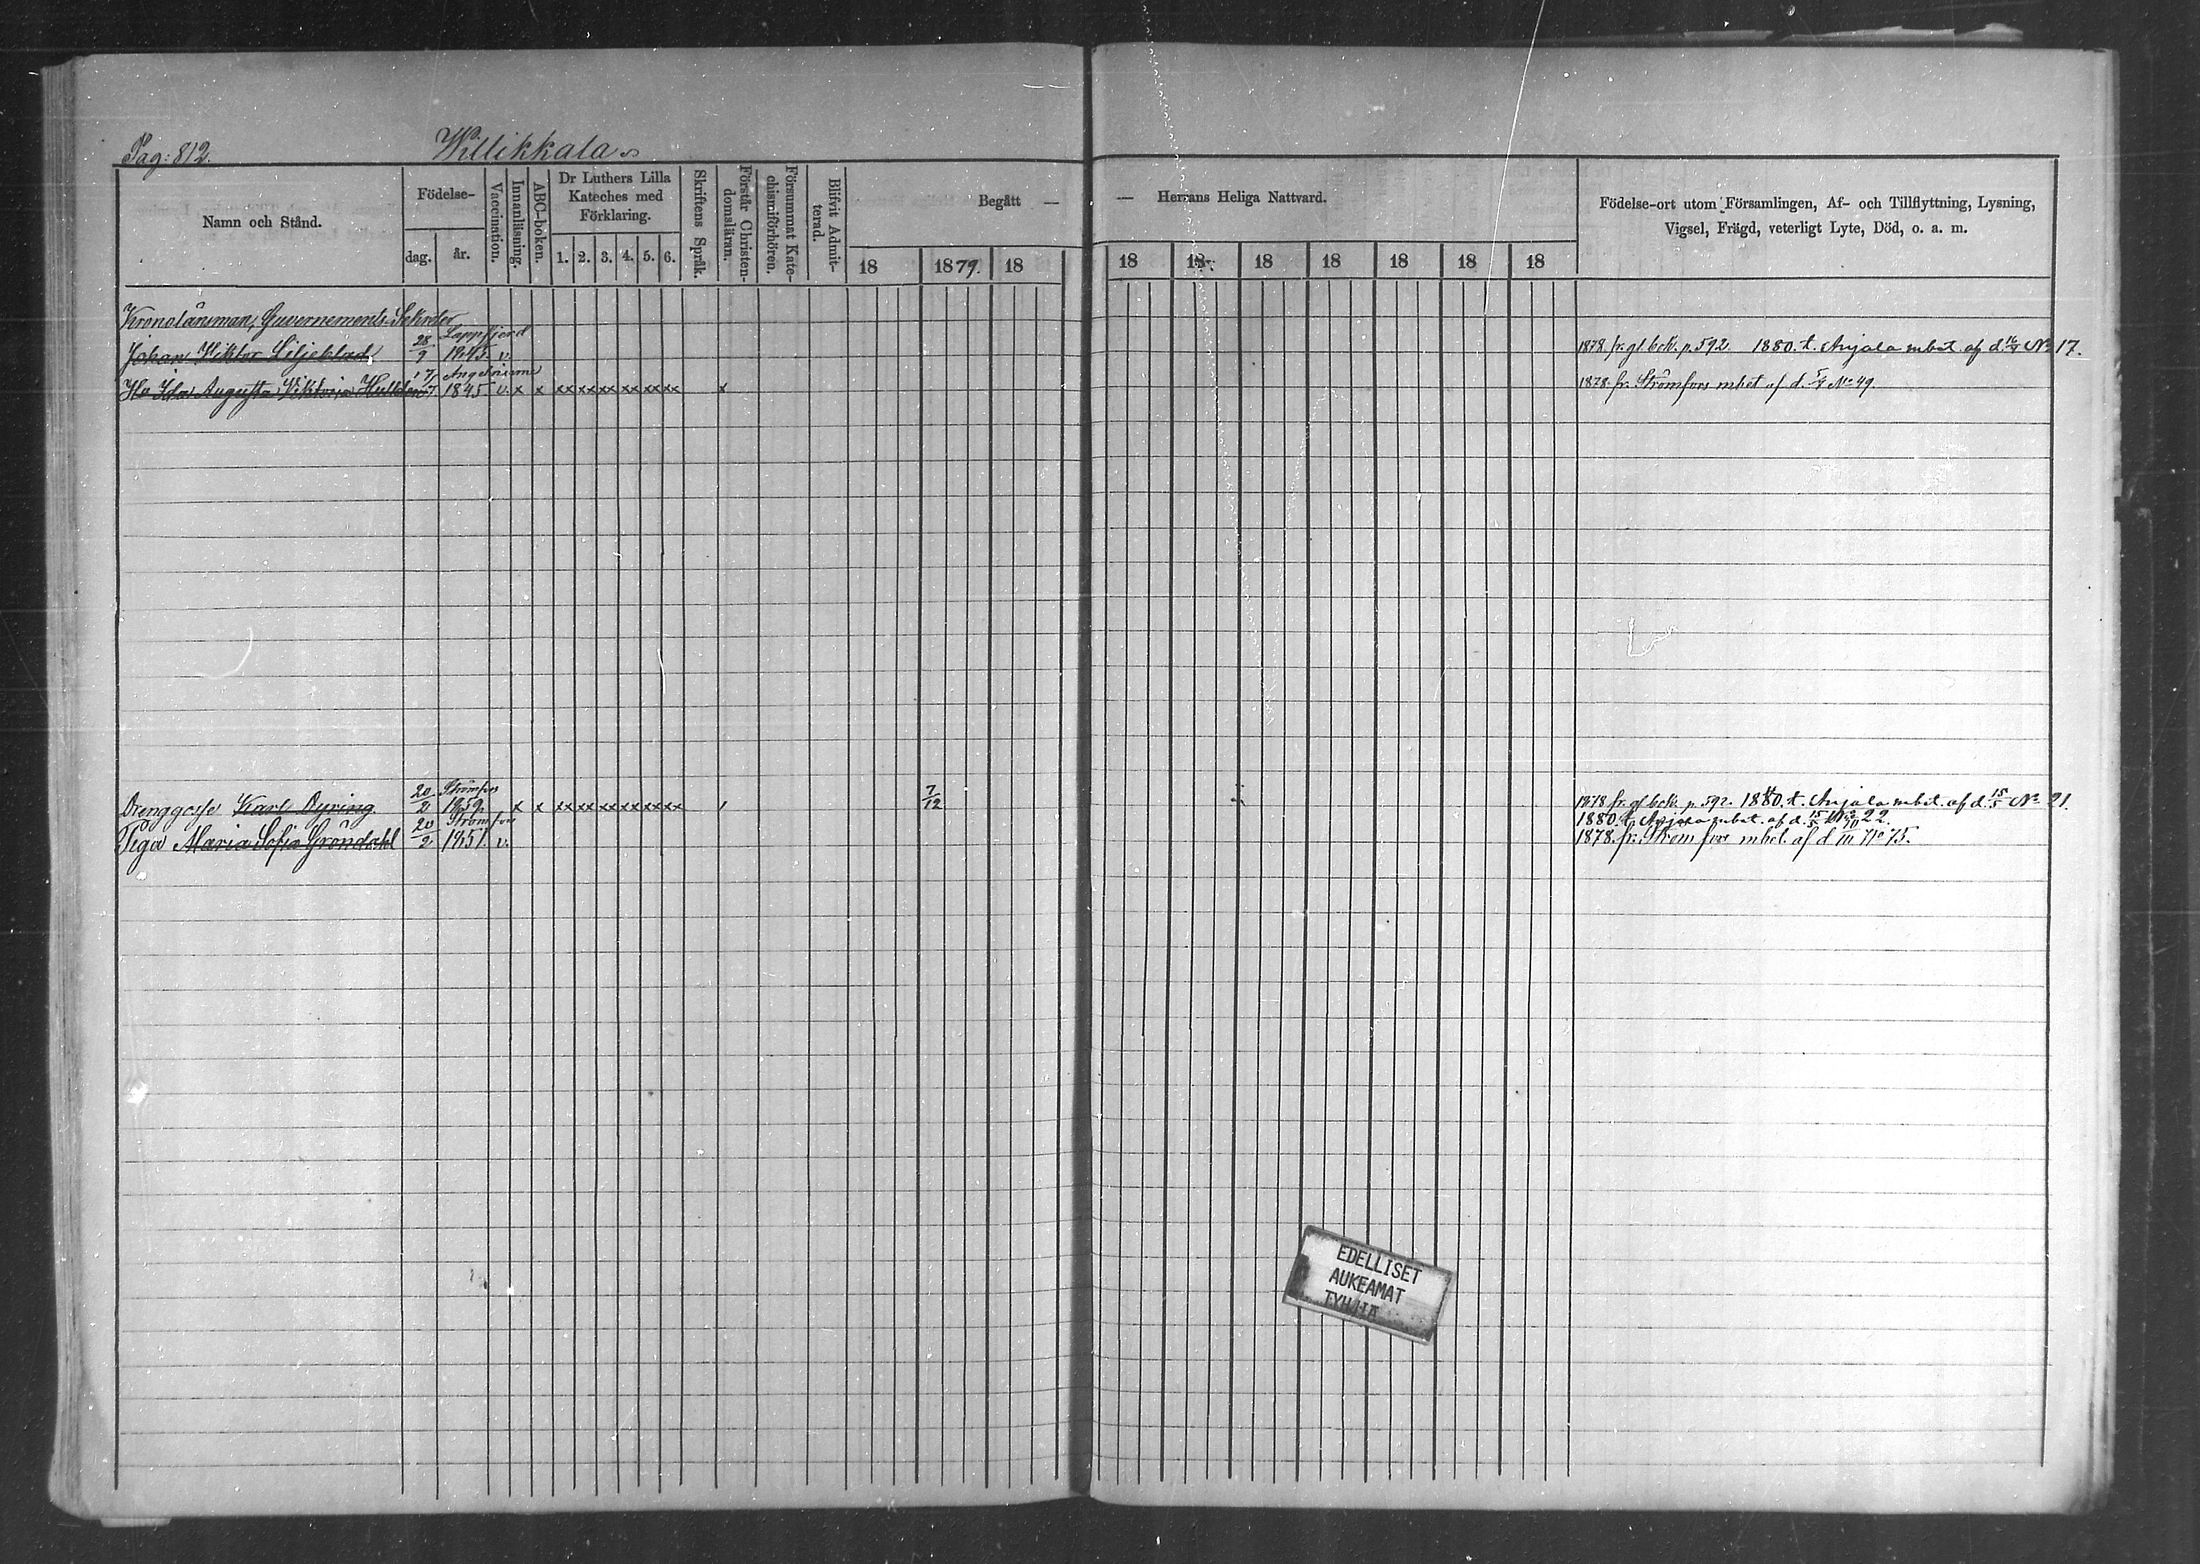 Pag: 812.
Willikkala
Namn och Stånd.
Födelse-
dag.
år.
Vaccination.
Innanläsning.
ABC-boken.
Dr Luthers Lilla
Kateches med
Förklaring.
1. 2. 3. 4. 5. 6.
Skriftens Språk.
Förstår Christen-
domsläran.
Försummat Kate-
chismiförhören.
Blifvit Admit-
terad.
Begått —
18 1879. 18
— Herrans Heliga Nattvard.
18 18 18 18 18 18 18
Födelse-ort utom Församlingen, Af- och Tillflyttning, Lysning,
Vigsel, Frägd, veterligt Lyte, Död, o. a. m.
Kronolänsman, Guvernements Sekreter
Lappfjerd
Johan Viktor Liljeblad 28/9 1845 v. 1878 fr. gl. bok. p. 592. 1880. t. Anjala mbet af d. No 17.
Ida Augusta Viktoria 1845 v. x x xx xx xx xx xx xx x 1878 fr. Strömfors mbet af d. No 49.
Strömfors
Drenggosse Karl Dyring 20/2 1859 x x xx xx xx xx xx xx 7/12 1878 fr. gl. bok. p. 592. 1880. t. Anjala mbet. af d. 15/5 No 21.
Strömfors
1880. t. Anjala mbet. af d. 15/5 No 22.
Piga Maria Sofia Gröndahl 20/2 1851. v. 1878. fr. Strömfors mbet. af d No 75.
EDELLISET
AUKEAMAT
TYHJIÄ